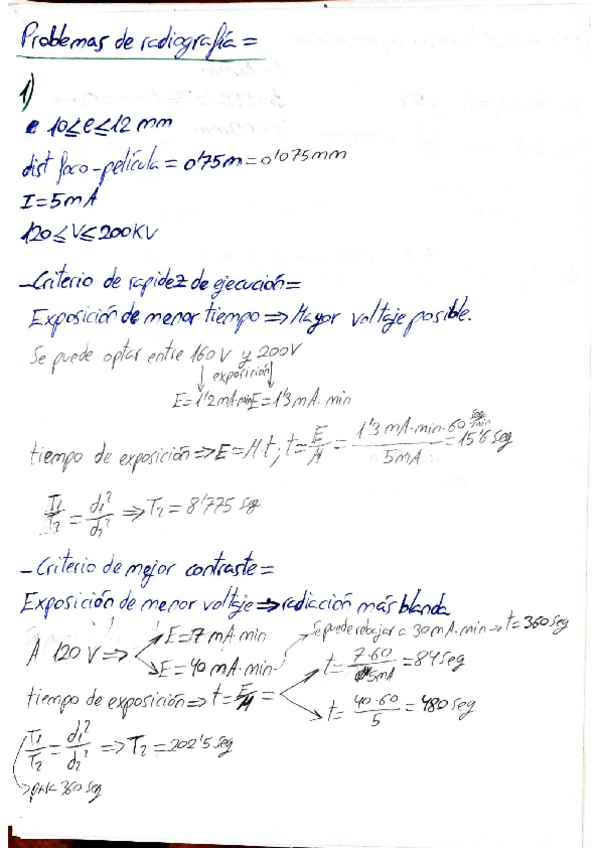 Problemas de radiografía =
1)
e 10≤e≤12 mm
dist foco-película = 0'75m = 0'075mm
I = 5mA
120≤V≤200KV
-Criterio de rapidez de ejecución=
Exposición de menor tiempo ⇒ Mayor voltaje posible.
Se puede optar entre 160V y 200V
exposición
E=1'2mA·min E=1'3 mA·min
tiempo de exposición ⇒ E=M·t; t= E/M = 1'3 mA·min·60 seg/min / 5mA = 15'6 seg
T1/T2 = d1²/d2² ⇒ T2 = 8'775 seg
-Criterio de mejor contraste=
Exposición de menor voltaje ⇒ radiación más blanda
A 120 V ⇒ E=17 mA·min Se puede rebajar a 30 mA·min → t=360 seg
E=40 mA·min
t= 7·60 / 5mA = 84 seg
tiempo de exposición ⇒ t= E/M =
t= 40·60 / 5 = 480 seg
T1/T2 = d1²/d2² ⇒ T2 = 202'5 seg
360 seg